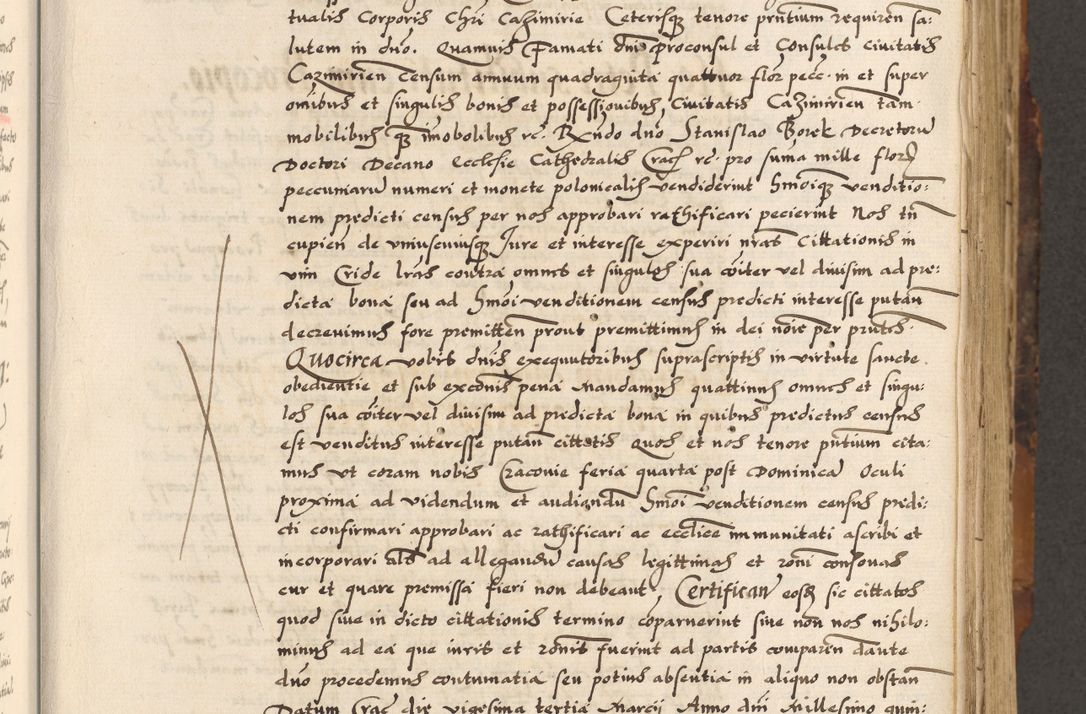 tualis Corporis Chri Cazimirie Ceterisq tenore prntium requiren sa:
lutem in dno. Quamuis Famati dni Proconsul et Consules Ciuitatis
Cazimirien Censum annuum quadraginta quattuor flor pecc. in et super
omibus et singulis bonis et possessionibus Ciuitatis Cazimirien tam
mobilibus q imobolibus rc. Rndo dno Stanislao Borek Decretoru
Doctori Decano Ecclesie Cathedralis Crac rc. pro suma mille flor
peccuniaru numeri et monete polonicalis vendiderint hmoiq venditio:
nem predicti census per nos approbari rathificari pecierint Nos tn
cupien de vniuscuiusq Iure et interesse experiri nras Cittationis in
vim Cride lras contra omnes et singulos sua coiter vel diuisim ad pre:
dicta bona seu ad hmoi venditionem census predicti interesse putan
decreuimus fore premitten prout premittimus in dei noie per prntes.
Quocirca vobis dnis exequutoribus suprascriptis in virtute sancte
obedientie et sub exconis pena mandamus quattinus omnes et singu:
los sua coiter vel diuisim ad predicta bona in quibus predictus census
est venditus interesse putan cittetis Quos et nos tenore prntium cita:
mus vt coram nobis Cracouie feria quarta post Dominica Oculi
proxima ad videndum et audiendu hmoi venditionem census predi:
cti confirmari approbari ac rathificari ac ecclice immunitati ascribi et
incorporari als ad allegandu causas legittimas et roni consonas
cur et quare premissa fieri non debeant, Certifican eosd sic cittatos
quod siue in dicto cittationis termino coparuerint siue non nos nihilo:
minus ad ea que iuris et ronis fuerint ad partis comparen dante
dno procedemus contumatia seu potius absentia in aliquo non obstan
Datum Crac die vigesima tertia Marcij Anno dni Millesimo quin: